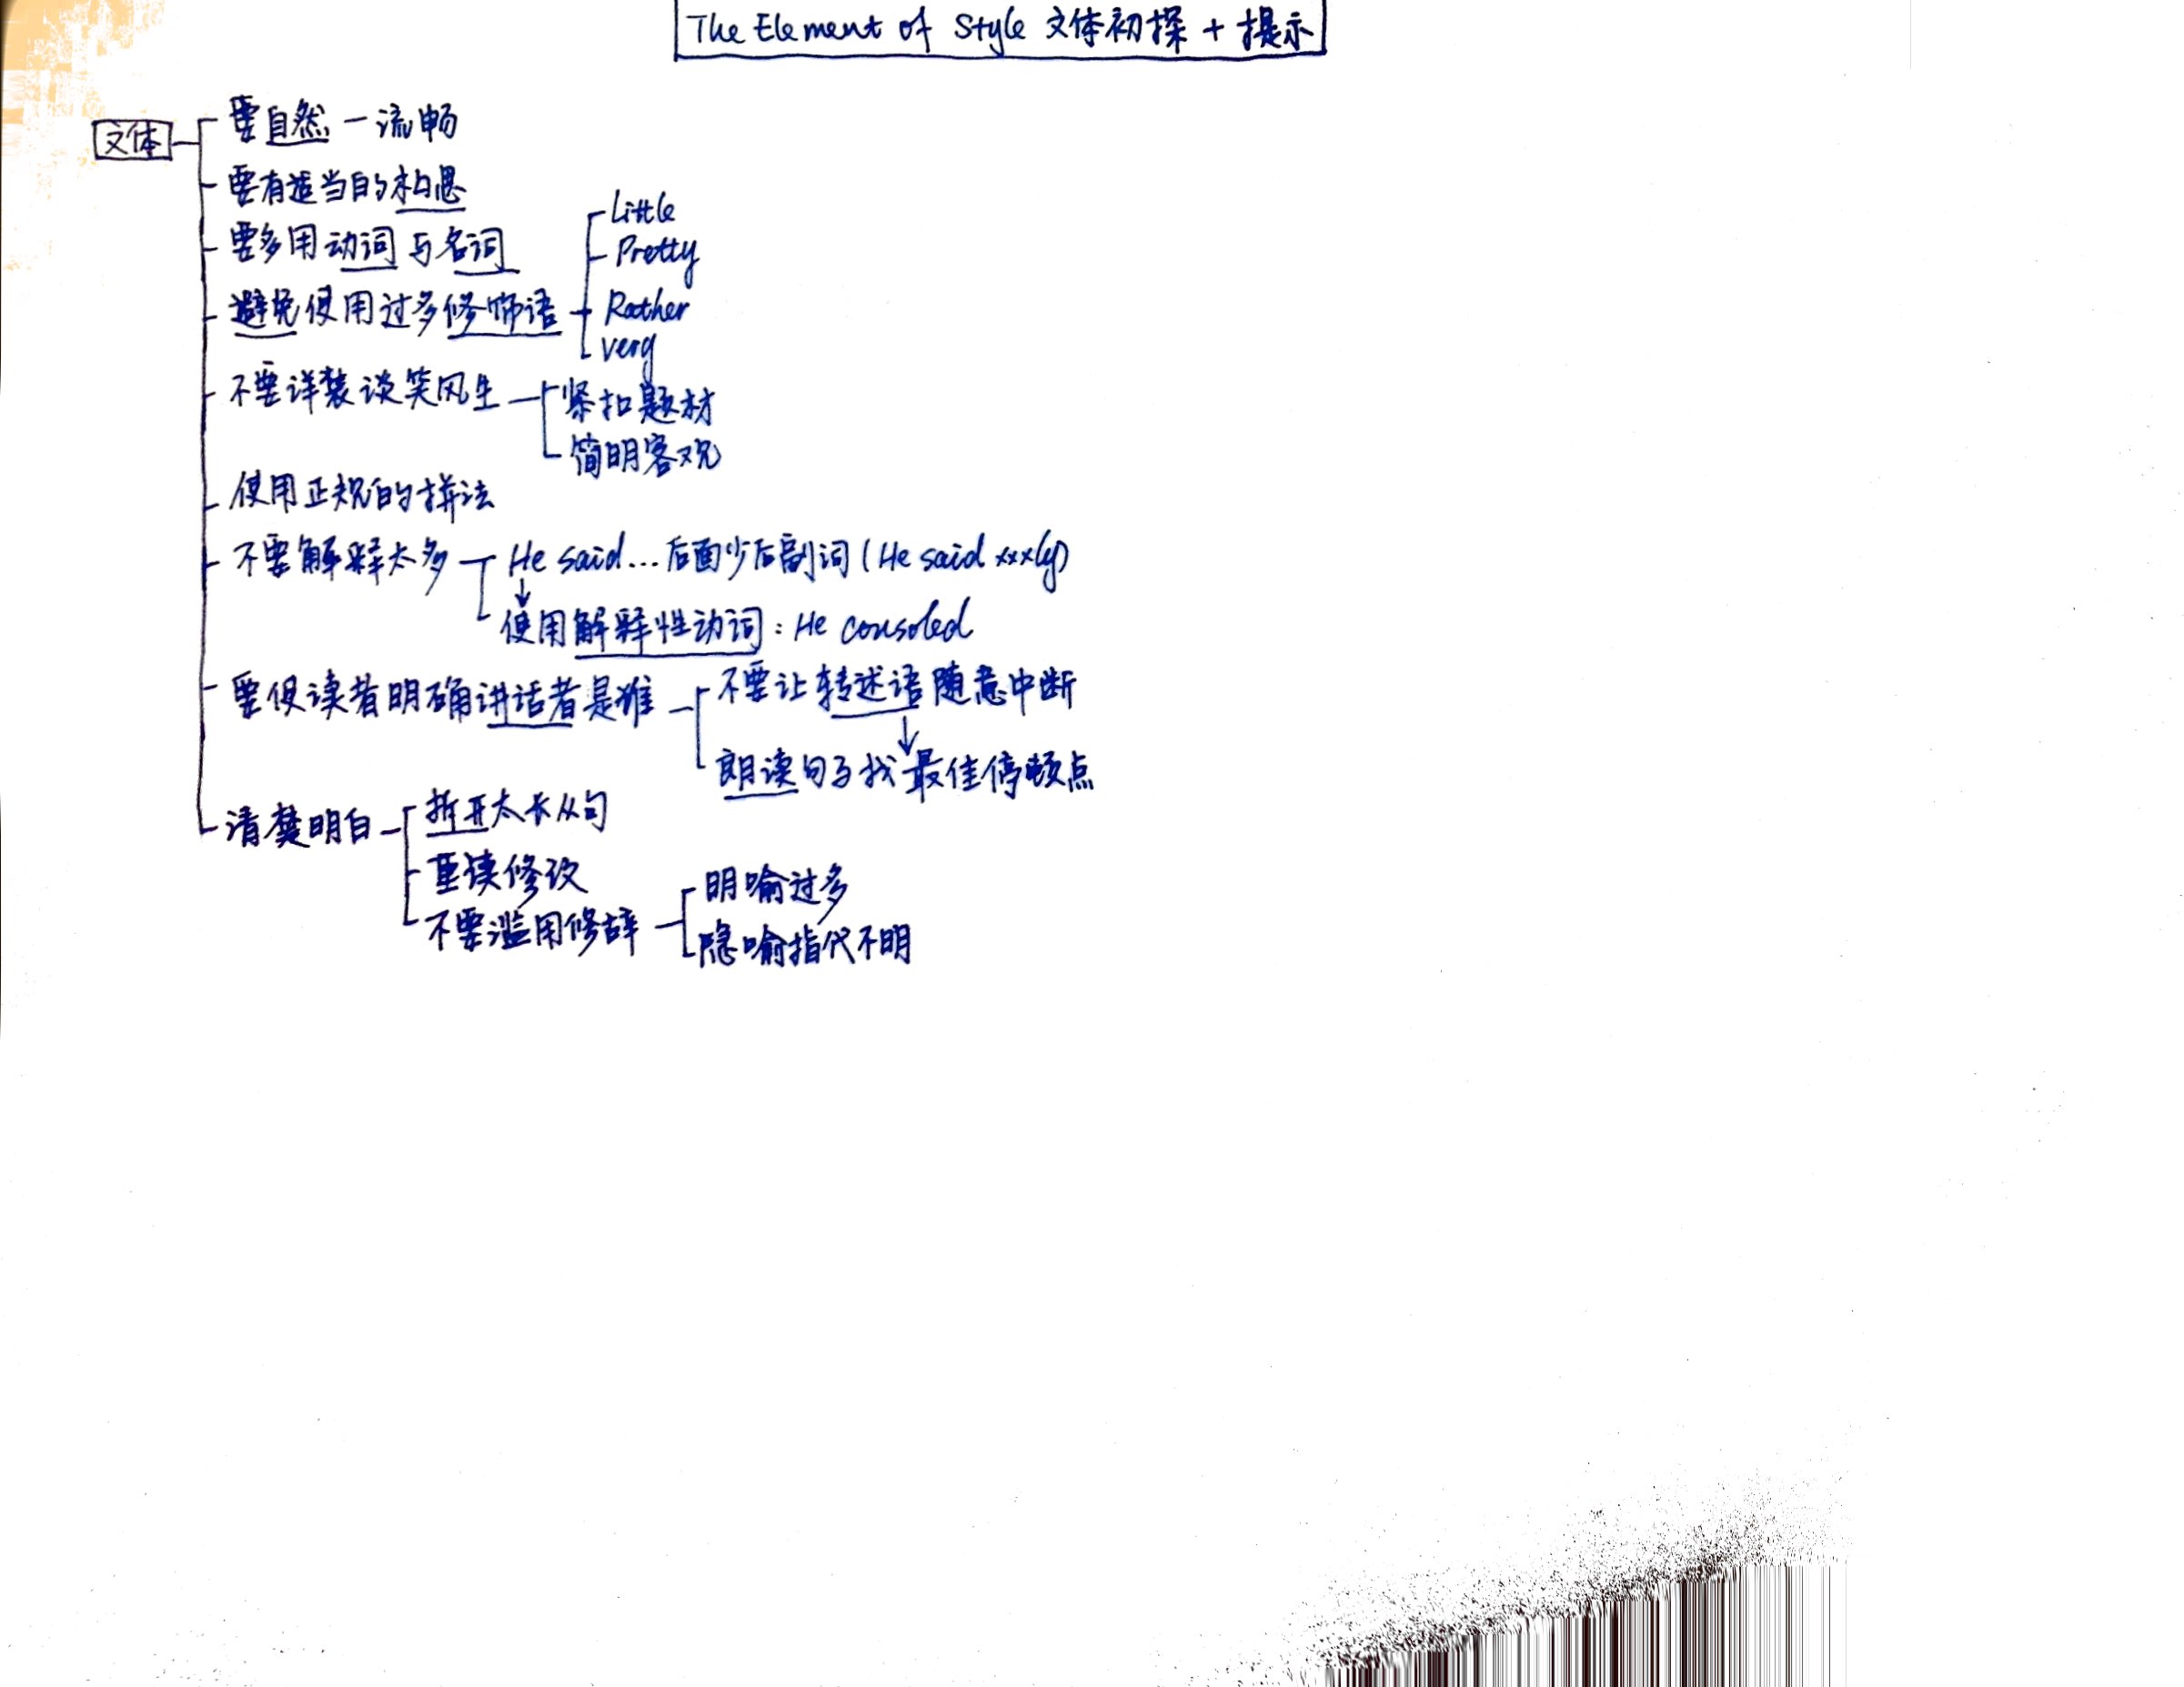 The Element of Style 文体初探 + 提示
文体
要自然 - 流畅
要有适当的构思
要多用动词与名词
避免使用过多修饰语
Little
Pretty
Rather
very
不要详装谈笑风生
紧扣题材
简明客观
使用正规的拼法
不要解释太多
He said... 后面少后副词 (He said xxxly)
↓
使用解释性动词: He consoled
要使读者明确讲话者是谁
不要让转述语随意中断
↓
朗读句子找最佳停顿点
清楚明白
拆开太长从句
重读修改
不要滥用修辞
明喻过多
隐喻指代不明